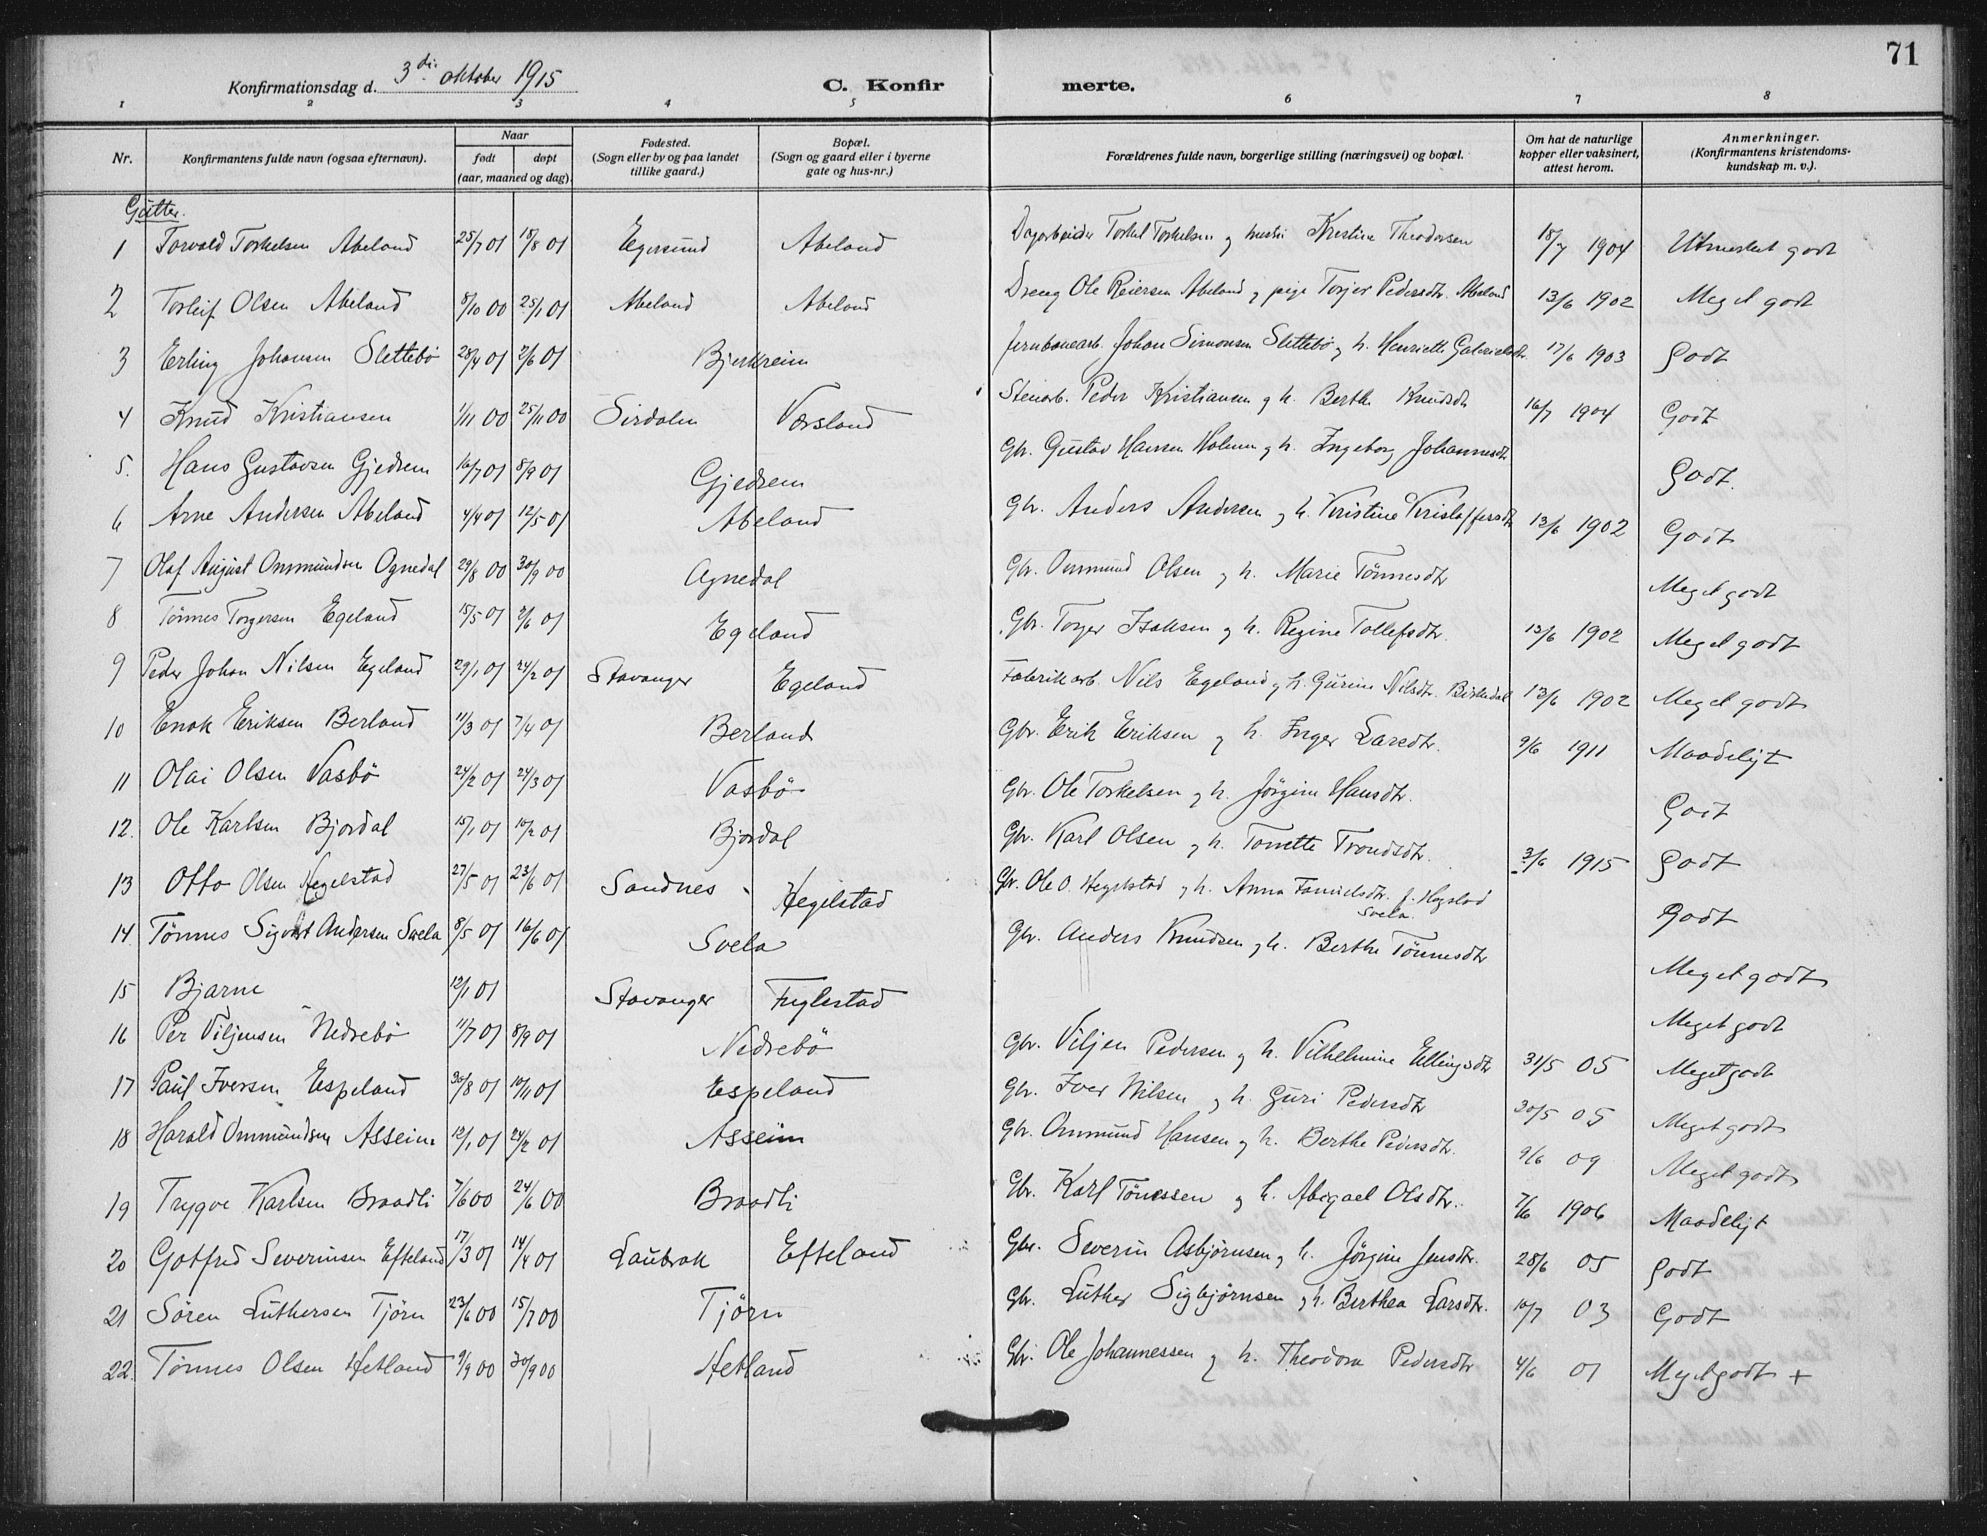 71
Konfirmationsdag d. 3die oktober 1915 C. Konfirmerte.
1 2 3 4 5 6 7 8
Nr. Konfirmantens fulde navn (ogsaa efternavn). Naar født døpt (aar, maaned og dag). Fødested. (Sogn eller by og paa landet tillike gaard.) Bopæl. (Sogn og gaard eller i byerne gate og hus-nr.) Forældrenes fulde navn, borgerlige stilling (næringsvei) og bopæl. Om hat de naturlige kopper eller vaksinert, attest herom. Anmerkninger. (Konfirmantens kristendomskundskap m. v.).
Gutter.
1 Torvald Torkelsen Abeland 25/7 01 18/8 01 Egersund Abeland Dagarbeider Torkel Torkelsen og hustru Kristine Theodorsen 18/7 1904 Utmerket godt
2 Torleif Olsen Abeland 8/10 00 25/1 01 Abeland Abeland Dreng Ole Reiersen Abeland og pige Torjer Pedersdtr. Abeland 13/6 1902 Meget godt
3 Erling Johansen Slettebö 28/4 01 2/6 01 Bjerkreim Jernbanearb. Johan Simonsen Slettebö og h. Henriette Gabrielsdtr. 17/6 1903 Godt
4 Knud Kristiansen 1/11 00 25/11 00 Sirdalen Vorsland Stenarb. Peder Kristiansen og h. Berthe Knudsdtr 16/7 1904 Godt
5. Hans Gustavsen Gjedrem 16/7 01 8/9 01 Gjedrem Gbr. Gustav Hansen Holmen og h. Ingeborg Johannesdtr Godt.
6 Arne Andersen Abeland 4/4 01 12/5 01 Abeland Gbr. Anders Andersen og h. Kristine Kristoffersdtr 13/6 1902 Godt
7 Olaf August Ommundsen Ognedal 29/8 00 30/9 00 Ognedal Gbr. Ommund Olsen og h. Marie Tönnesdtr Meget godt
8 Tönnes Torgersen Egeland 15/5 01 2/6 01 Egeland Gbr. Torger Isaksen og h. Regine Tollefsdtr. 13/6 1902 Meget godt
9 Peder Johan Nilsen Egeland 29/1 01 24/2 01 Stavanger Egeland Fabrikarb. Nils Egeland og h. Gurine Nilsdtr. Birkedal 13/6 1902 Meget godt
10 Enok Eriksen Berland 11/3 01 7/4 01 Berland Gbr. Erik Eriksen og h. Inger Larsdtr. 9/6 1911 Maadeligt
11 Olai Olsen Vasbö 24/2 01 24/3 01 Vasbö Gbr. Ole Torkelsen og h. Jörgine Hansdtr. Godt
12. Ole Karlsen Bjordal 15/1 01 10/2 01 Bjordal Gbr. Karl Olsen og h. Tonette Trondsdtr. 3/6 1915 Godt
13 Otto Olsen Hegelstad 27/5 01 23/6 01 Sandnes Hegelstad Gbr. Ole O. Hegelstad og h. Anna Danielsdtr. f. Hogstad Godt
14 Tönnes Sigvart Andersen Svela 8/5 01 16/6 01 Svela Gbr. Anders Knudsen Svela og h. Berthe Tönnesdtr Meget godt
15 Bjarne 12/1 01 Stavanger Fuglestad Meget godt
16 Per Viljensen Nedrebö 11/7 01 8/9 01 Nedrebö Gbr. Viljen Pedersen og h. Vilhelmine Ellingsdtr 31/5 05 Meget godt
17 Paul Iversen Espeland 30/8 01 10/11 01 Espeland Gbr. Iver Nilsen og h. Guri Pedersdtr 30/5 05 Meget godt
18 Harald Ommundsen Asseim 12/1 01 24/2 01 Asseim Gbr. Ommund Hansen og h. Berthe Pedersdtr. 9/6 09 Meget godt
19 Trygve Karlsen Braadli 7/6 00 24/6 00 Braadli Gbr. Karl Tönessen og h. Abigael Olsdtr. 7/6 1906 Maadeligt
20 Gotfred Severinsen Efteland 17/3 01 14/4 01 Laubrak Efteland Gbr. Severin Asbjörnsen og h. Jörgine Jensdtr. 28/6 05 Godt
21 Sören Luthersen Tjörn 23/6 00 15/7 00 Tjörn Gbr. Luther Sigbjörnsen og h. Berthea Larsdtr. 10/7 03 Godt
22. Tönnes Olsen Hetland 9/9 00 30/9 00 Hetland Gbr. Ole Johannessen og h. Theodora Pedersdtr 4/6 01 Meget godt +